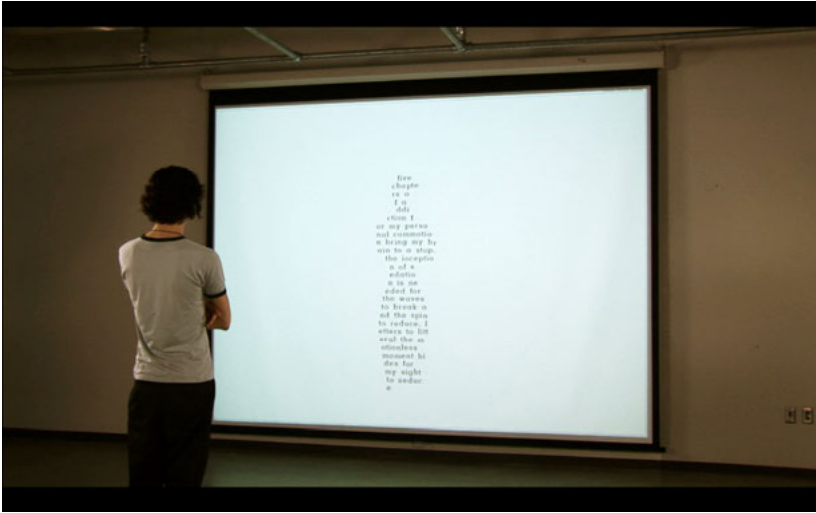 five
chapte
rs o
f a
ddi
ction f
or my perso
nal commotio
n bring my br
ain to a stop.
the inceptio
n of s
edatio
n is ne
eded for
the waves
to break a
nd the spin
to reduce. l
etters to litt
eral the m
otionless
moment hi
des for
my sight
to seduc
e